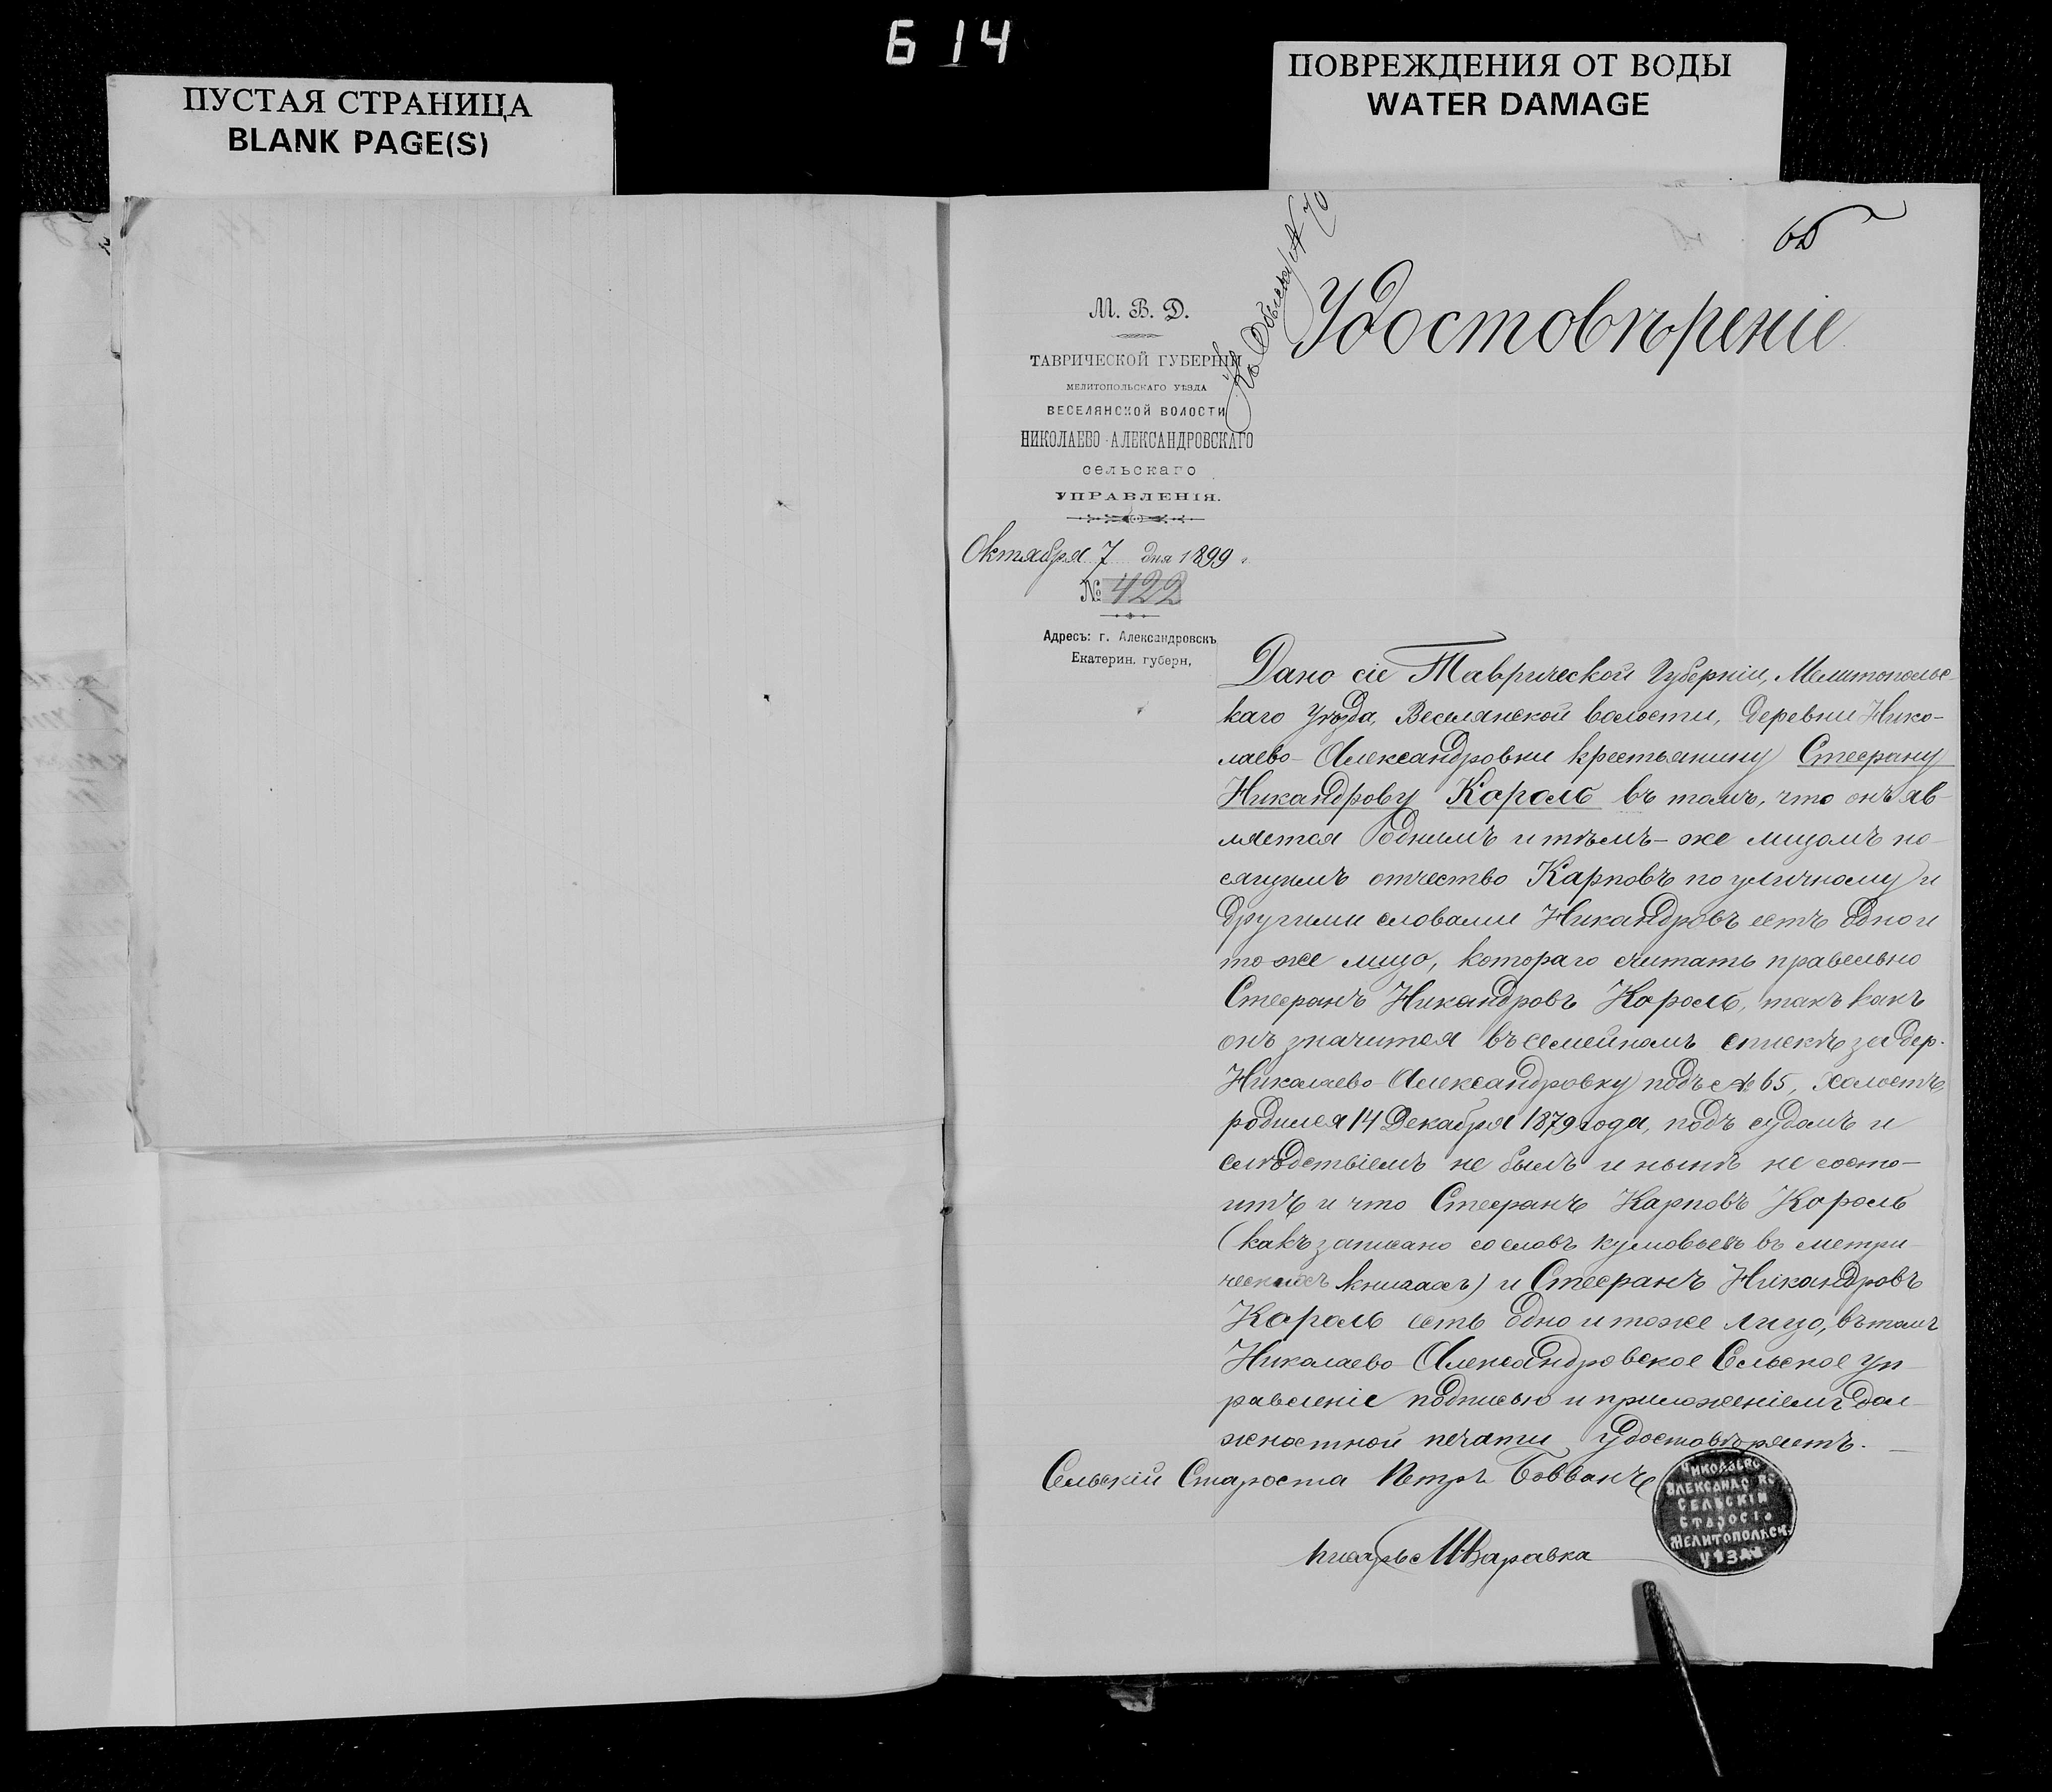 614
ПУСТАЯ СТРАНИЦА
BLANK PAGE(S)
ПОВРЕЖДЕНИЯ ОТ ВОДЫ
WATER DAMAGE
Къ Обыску № 70
Удостовѣреніе
М. В. Д.
ТАВРИЧЕСКОЙ ГУБЕРНІИ
МЕЛИТОПОЛЬСКАГО УѢЗДА
ВЕСЕЛЯНСКОЙ ВОЛОСТИ
НИКОЛАЕВО-АЛЕКСАНДРОВСКАГО
сельскаго
УПРАВЛЕНІЯ.
Октября 7 дня 1899 г
№ 422
Адресъ: г. Александровскъ
Екатерин. губерн,
Дано сіе Таврической Губерніи, Мелитопольс-
каго Уѣзда, Веселянской волости, деревни Нико-
лаево-Александровки крестьянину Стефану
Никандрову Король въ томъ, что онъ яв-
ляется однимъ и тѣмъ-же лицомъ но-
сящимъ отчество Карповъ по уличному и
другими словами Никандровъ есть одно и
то же лицо, котораго считать правельно
Стефанъ Никандровъ Король, такъ какъ
онъ значится въ семейномъ спискѣ за дер.
Николаево-Александровку подъ № 65, холостъ,
родился 14 Декабря 1879 года, подъ судомъ и
слѣдствіемъ не былъ и нынѣ не состо-
итъ и что Стефанъ Карповъ Король
(какъ записано со словъ кумовьевъ въ метри-
ческихъ книгахъ) и Стефанъ Никандровъ
Король есть одно и тоже лицо, въ томъ
Николаево Александровское Сельское Уп-
равленіе подписью и приложеніемъ дол-
жностной печати удостовѣряетъ.
Сельскій Староста Петръ Бовванъ
Писарь Шкаравка
НИКОЛАЕВО
АЛЕКСАНДРОВС.
СЕЛЬСКІЙ
СТАРОСТА
МЕЛИТОПОЛЬСК.
УѢЗДА